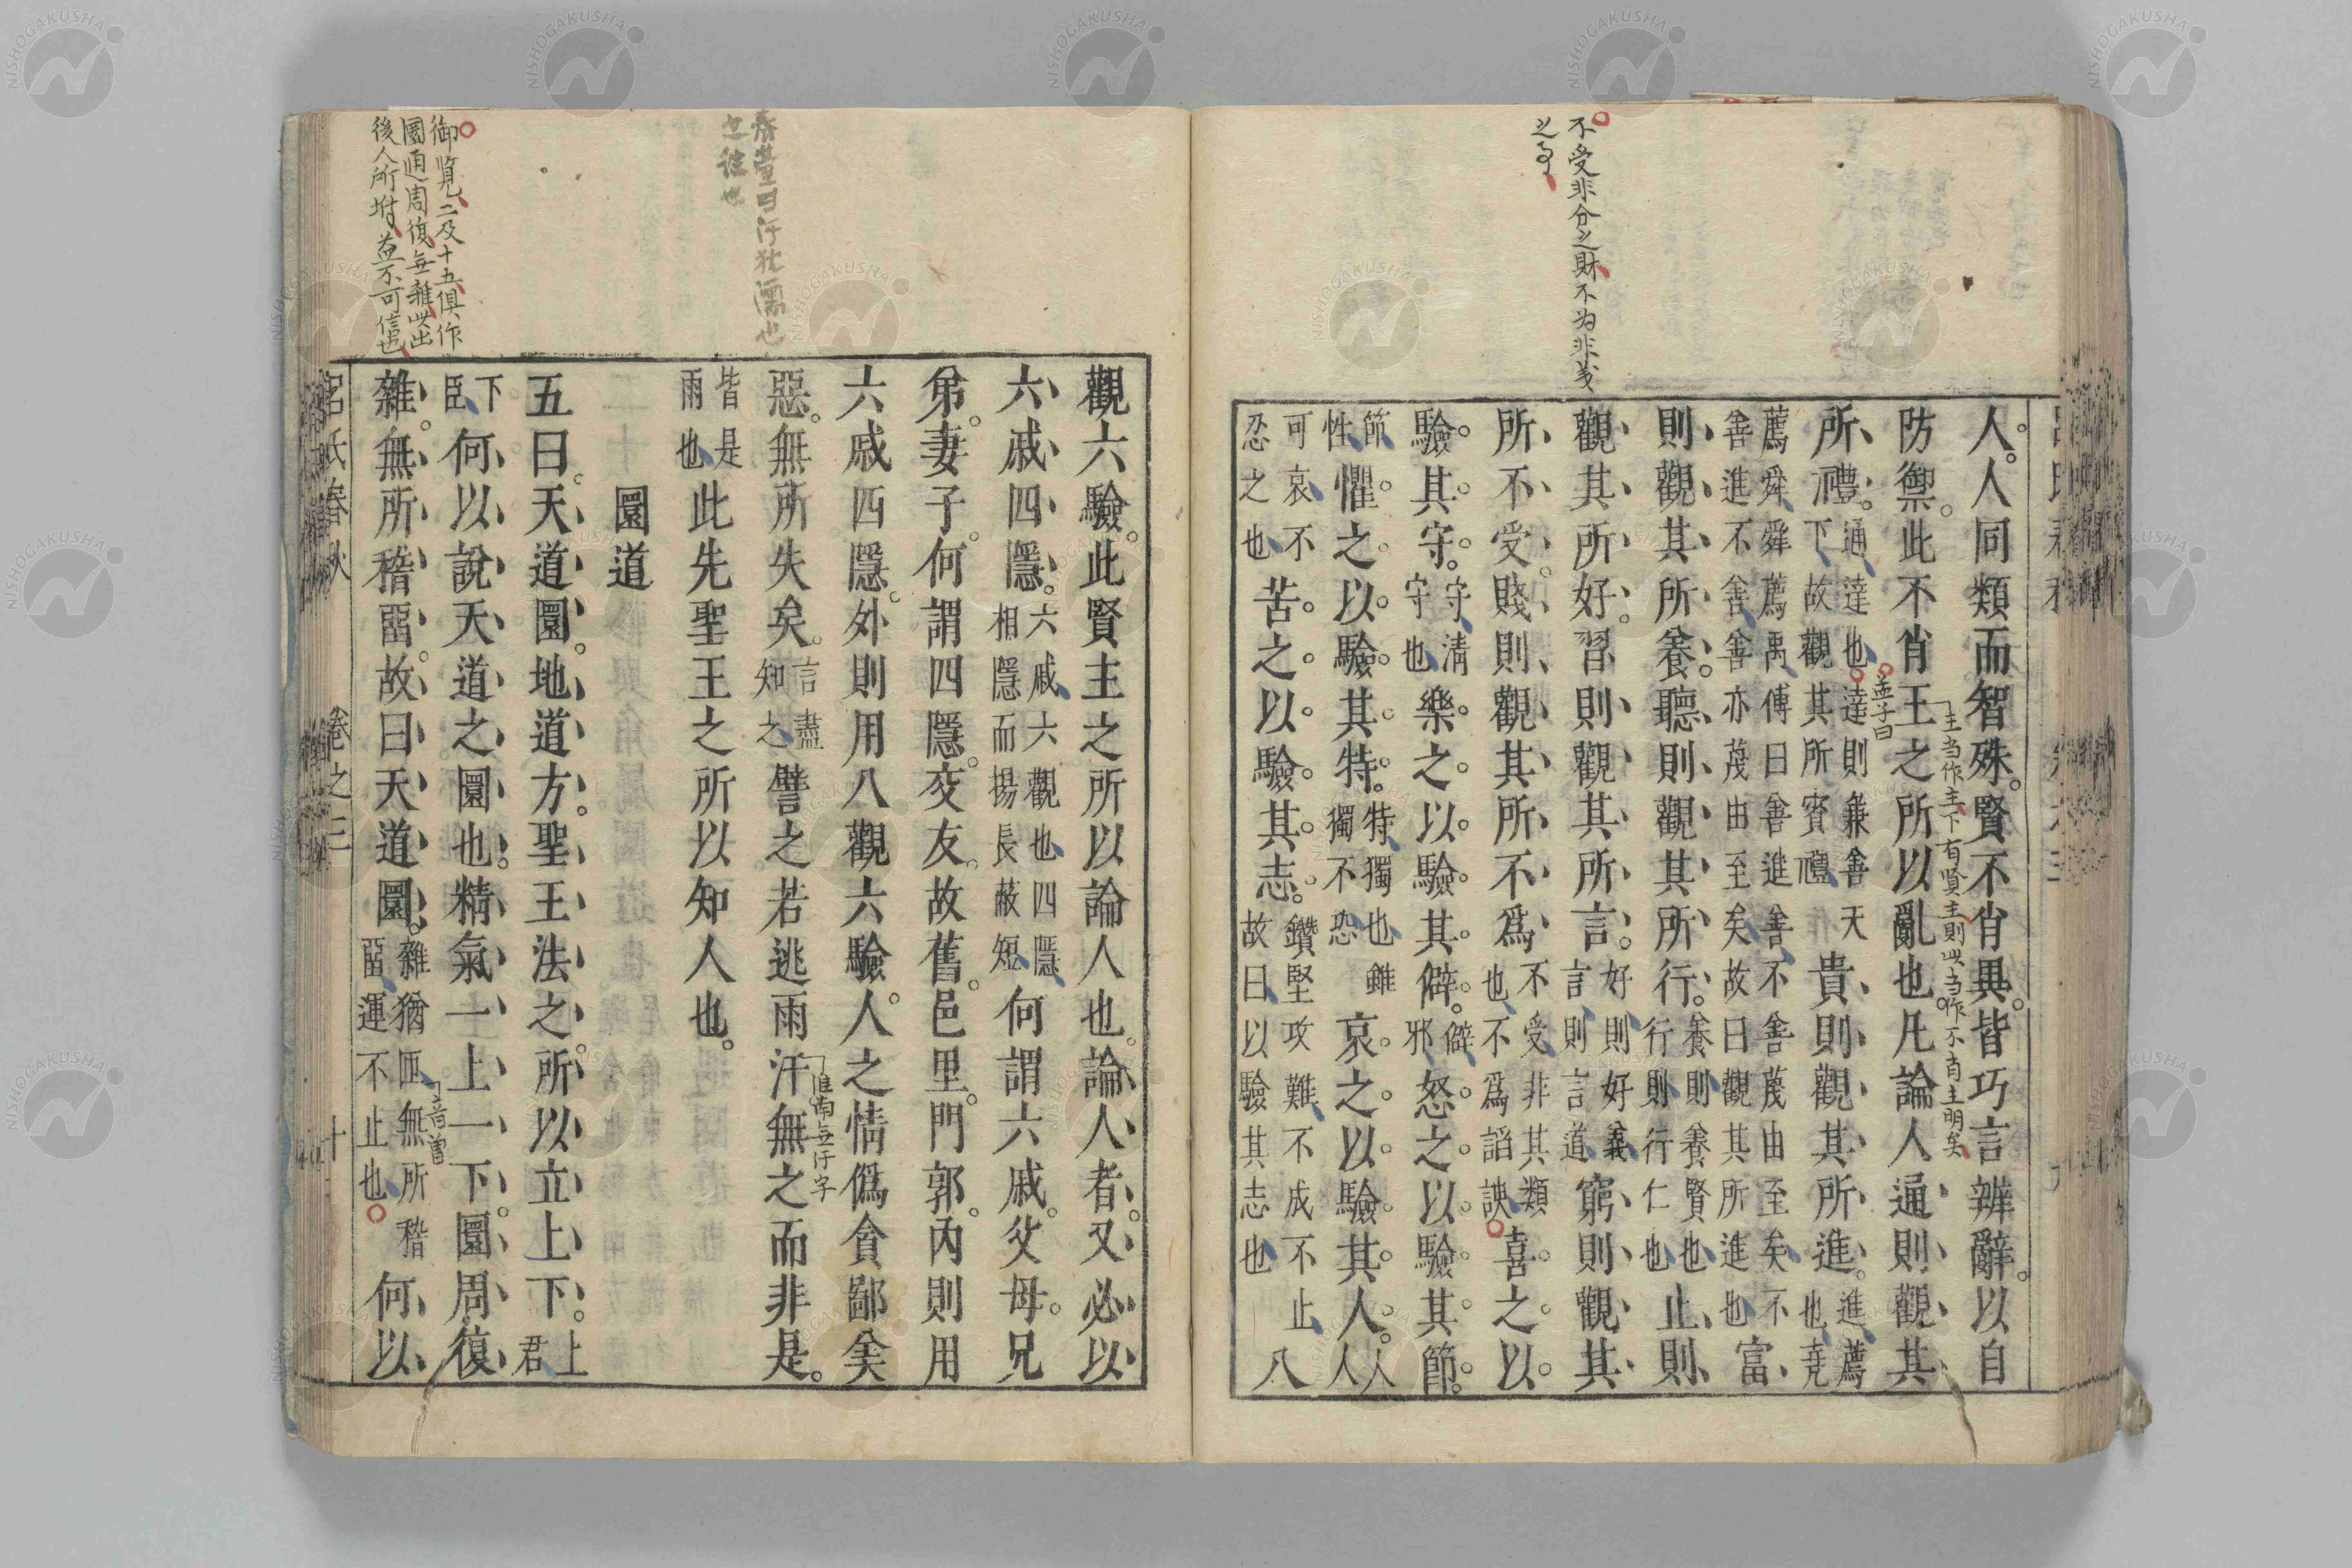 不受非分之財不为非義
之事
人人同類而智殊賢不肖異皆巧言辨辭以自
主当作主下有贤主則此当作不肖主明矣
防禦此不肖王之所以亂也凡論人通則觀其
孟子曰
所禮通達也達則兼善天下故觀其所賓禮貴則觀其所進進薦也堯
薦舜舜薦禹傅曰善進善不善蔑由至矣故曰觀其所進也富
善進不善善亦茂由至矣不
則觀其所養聽則觀其所行養則養賢也行則行仁也止則
觀其所好習則觀其所言好則好義言則言道窮則觀其
所不受賤則觀其所不爲不受非其類也不爲諂諛喜之以
驗其守守清守也樂之以驗其僻僻邪怒之以驗其節
節性懼之以驗其特特獨也雖獨不恐哀之以驗其人人人
可哀不忍之也苦之以驗其志鑽堅攻難不成不止故曰以驗其志也八
御覧二及十五俱作
圜通周復無雜此出
後人所坿益不可信也
也
觀六驗此賢主之所以論人也論人者又必以
六戚四隱六戚六觀也四隱相隱而揚長蔽短何謂六戚父母兄
弟妻子何謂四隱交友故舊邑里門郭內則用
六戚四隱外則用八觀六驗人之情僞貪鄙羙
淮南無汗字
惡無所失矣言盡知之譬之若逃雨汙無之而非是
皆是雨也此先聖王之所以知人也
圜道
五曰天道圜地道方聖王法之所以立上下上君
下臣何以說天道之圜也精氣一上一下圜周復
雜無所稽畱故曰天道圜雜猶匝無所稽畱運不止也何以
呂氏春秋 卷之三 十